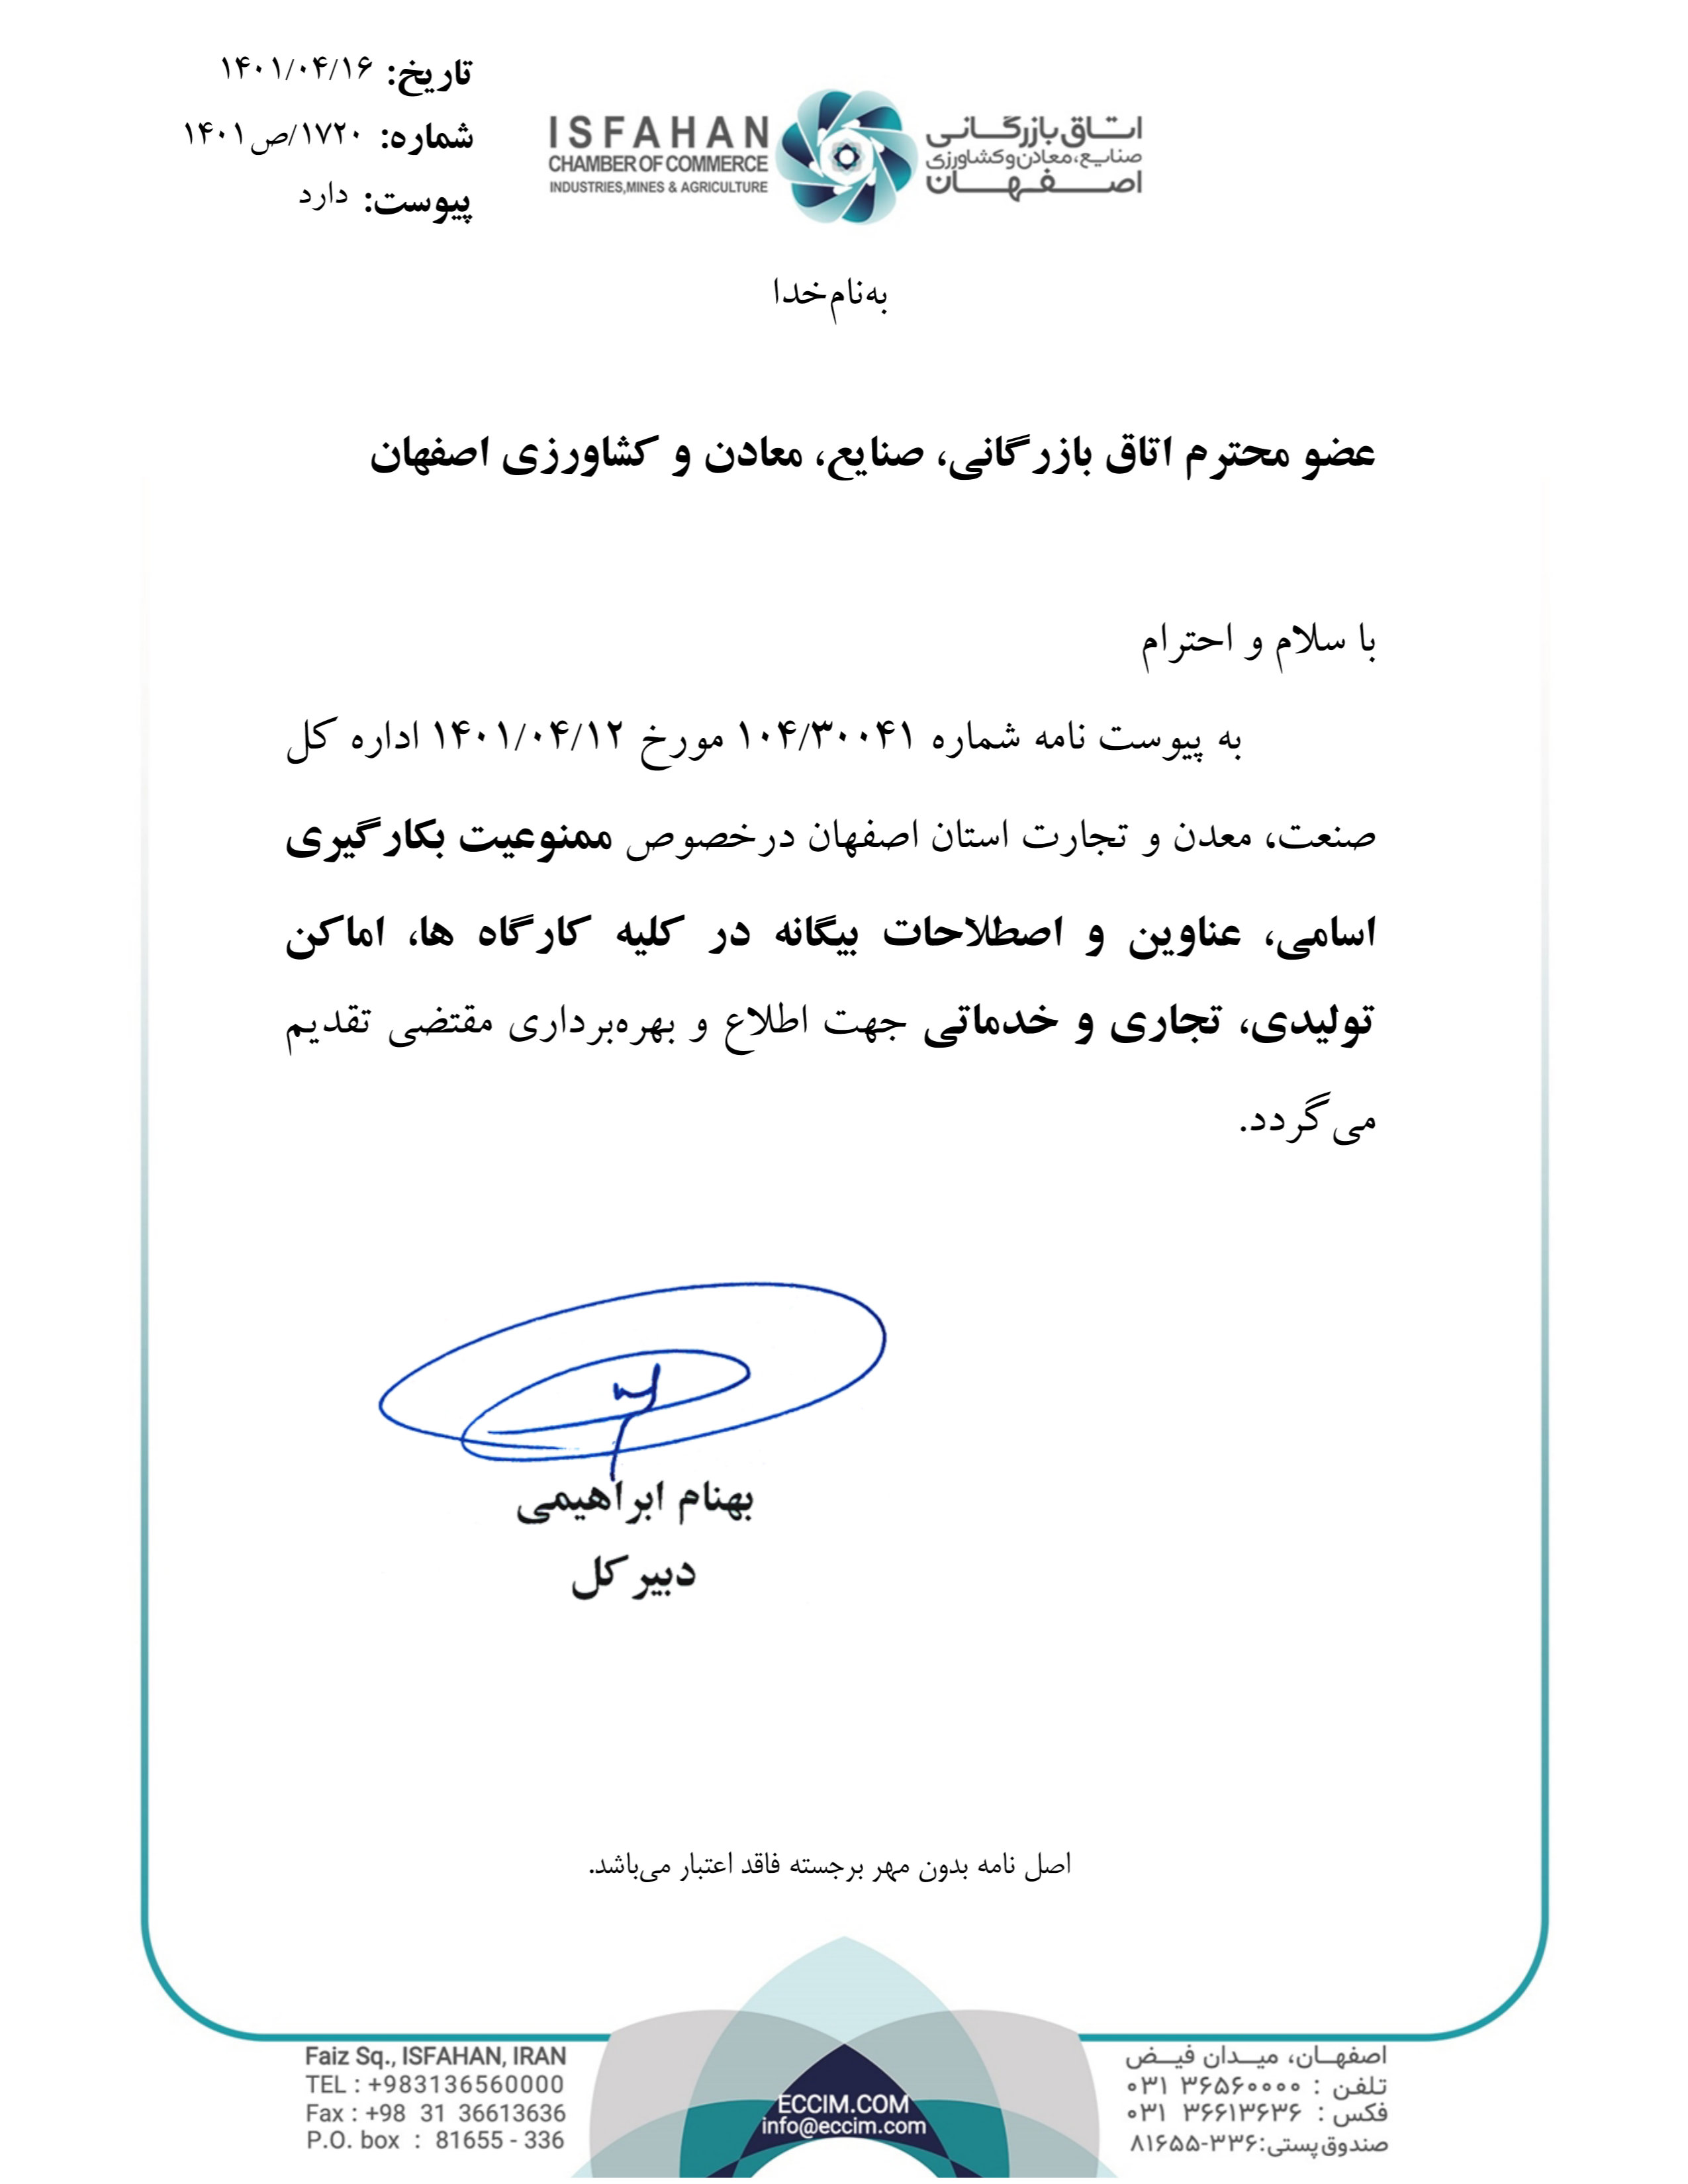 تاریخ: ۱۴۰۱/۰۴/۱۶
شماره: ۱۷۲۰/ص۱۴۰۱
پیوست: دارد
ISFAHAN
CHAMBER OF COMMERCE
INDUSTRIES,MINES & AGRICULTURE
اتاق بازرگانی
صنایع،معادن و کشاورزی
اصفهان
به‌نام‌خدا
عضو محترم اتاق بازرگانی، صنایع، معادن و کشاورزی اصفهان
با سلام و احترام
به پیوست نامه شماره ۱۰۴/۳۰۰۴۱ مورخ ۱۴۰۱/۰۴/۱۲ اداره کل
صنعت، معدن و تجارت استان اصفهان درخصوص ممنوعیت بکارگیری
اسامی، عناوین و اصطلاحات بیگانه در کلیه کارگاه ها، اماکن
تولیدی، تجاری و خدماتی جهت اطلاع و بهره‌برداری مقتضی تقدیم
می‌گردد.
بهنام ابراهیمی
دبیرکل
اصل نامه بدون مهر برجسته فاقد اعتبار می‌باشد.
Faiz Sq., ISFAHAN, IRAN
TEL : +983136560000
Fax : +98 31 36613636
P.O. box : 81655 - 336
ECCIM.COM
info@eccim.com
اصفهان، میدان فیض
تلفن : ۳۶۵۶۰۰۰۰ ۰۳۱
فکس : ۳۶۶۱۳۶۳۶ ۰۳۱
صندوق‌پستی:۳۳۶-۸۱۶۵۵